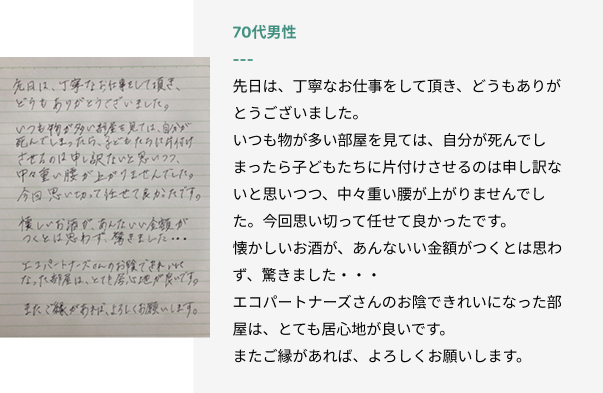 先日は、丁寧なお仕事をして頂き、
どうもありがとうございました。
いつも物が多い部屋を見ては、自分が
死んでしまったら、子どもたちに片付け
させるのは申し訳ないと思いつつ、
中々重い腰が上がりませんでした。
今回思い切って任せて良かったです。
懐しいお酒が、あんないい金額が
つくとは思わず、驚きました・・・
エコパートナーズさんのお陰できれいに
なった部屋は、とても居心地が良いです。
またご縁があれば、よろしくお願いします。
70代男性
---
先日は、丁寧なお仕事をして頂き、どうもありが
とうございました。
いつも物が多い部屋を見ては、自分が死んでし
まったら子どもたちに片付けさせるのは申し訳な
いと思いつつ、中々重い腰が上がりませんでし
た。今回思い切って任せて良かったです。
懐かしいお酒が、あんないい金額がつくとは思わ
ず、驚きました・・・
エコパートナーズさんのお陰できれいになった部
屋は、とても居心地が良いです。
またご縁があれば、よろしくお願いします。